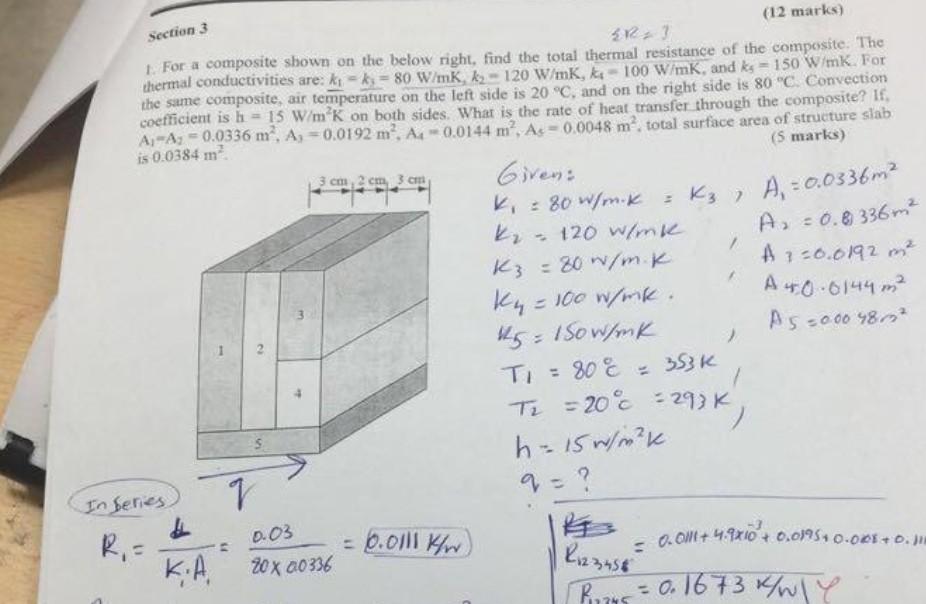 Section 3
(12 marks)
ΣR = ?
1. For a composite shown on the below right, find the total thermal resistance of the composite. The
thermal conductivities are: k₁ = k₃ = 80 W/mK, k₂ = 120 W/mK, k₄ = 100 W/mK, and k₅ = 150 W/mK. For
the same composite, air temperature on the left side is 20 °C, and on the right side is 80 °C. Convection
coefficient is h = 15 W/m²K on both sides. What is the rate of heat transfer through the composite? If,
A₁=A₂ = 0.0336 m², A₃ = 0.0192 m², A₄ = 0.0144 m², A₅ = 0.0048 m², total surface area of structure slab
is 0.0384 m².
(5 marks)
3 cm 2 cm 3 cm
1
2
3
4
5
q
Given:
K₁ = 80 W/m·K = K₃ , A₁ = 0.0336m²
K₂ = 120 W/mK , A₂ = 0.0336m²
K₃ = 80 W/m·K , A₃ = 0.0192 m²
K₄ = 100 W/mK . A₄ = 0.0144 m²
K₅ = 150 W/mK , A₅ = 0.0048m²
T₁ = 80°C = 353K ,
T₂ = 20°C = 293K ,
h = 15 W/m²K
q = ?
In Series
R₁ = L / K₁A₁ = 0.03 / 80 × 0.0336 = 0.0111 K/W
R₁₂₃₄₅ = 0.0111 + 4.9×10⁻³ + 0.0195 +
R₁₂₃₄₅ = 0.1673 K/W